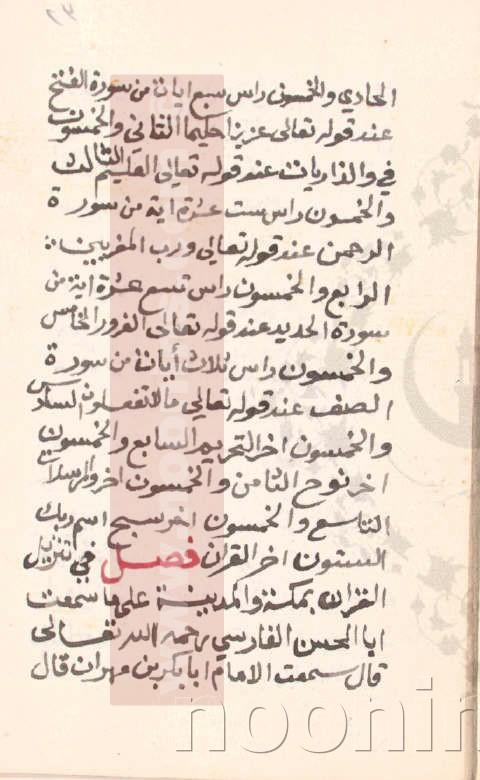 ٢٣
الحادي والخمسون راس سبع ايات من سورة الفتح
عند قوله تعالى عزيزا حكيما الثاني والخمسون
في والذاريات عند قوله تعالى العليم الثالث
والخمسون راس ست عشرة اية من سورة
الرحمن عند قوله تعالى ورب المغربين
الرابع والخمسون راس تسع عشرة اية من
سورة الحديد عند قوله تعالى الغرور الخامس
والخمسون راس ثلاث أيات من سورة
الصف عند قوله تعالي مالا تفعلون السادس
والخمسون اخر التحريم السابع والخمسون
اخر نوح الثامن والخمسون اخر والمرسلات
التاسع والخمسون اخر سبح اسم ربك
الستون اخر القران فصل في تنزيل
القران بمكة والمدينة على ما سمعت
ابا الحسن الفارسي رحمه الله تعالى
قال سمعت الامام ابا بكر بن مهران قال
noonin